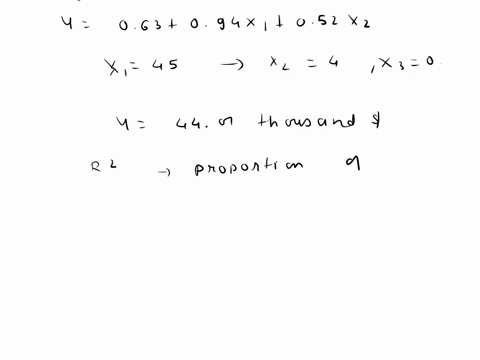 Y = 0.63 + 0.94 x₁ + 0.52 x₂
X₁ = 45 → x₂ = 4 , X₃ = 0.
Y = 44. thousand $
R² → proportion